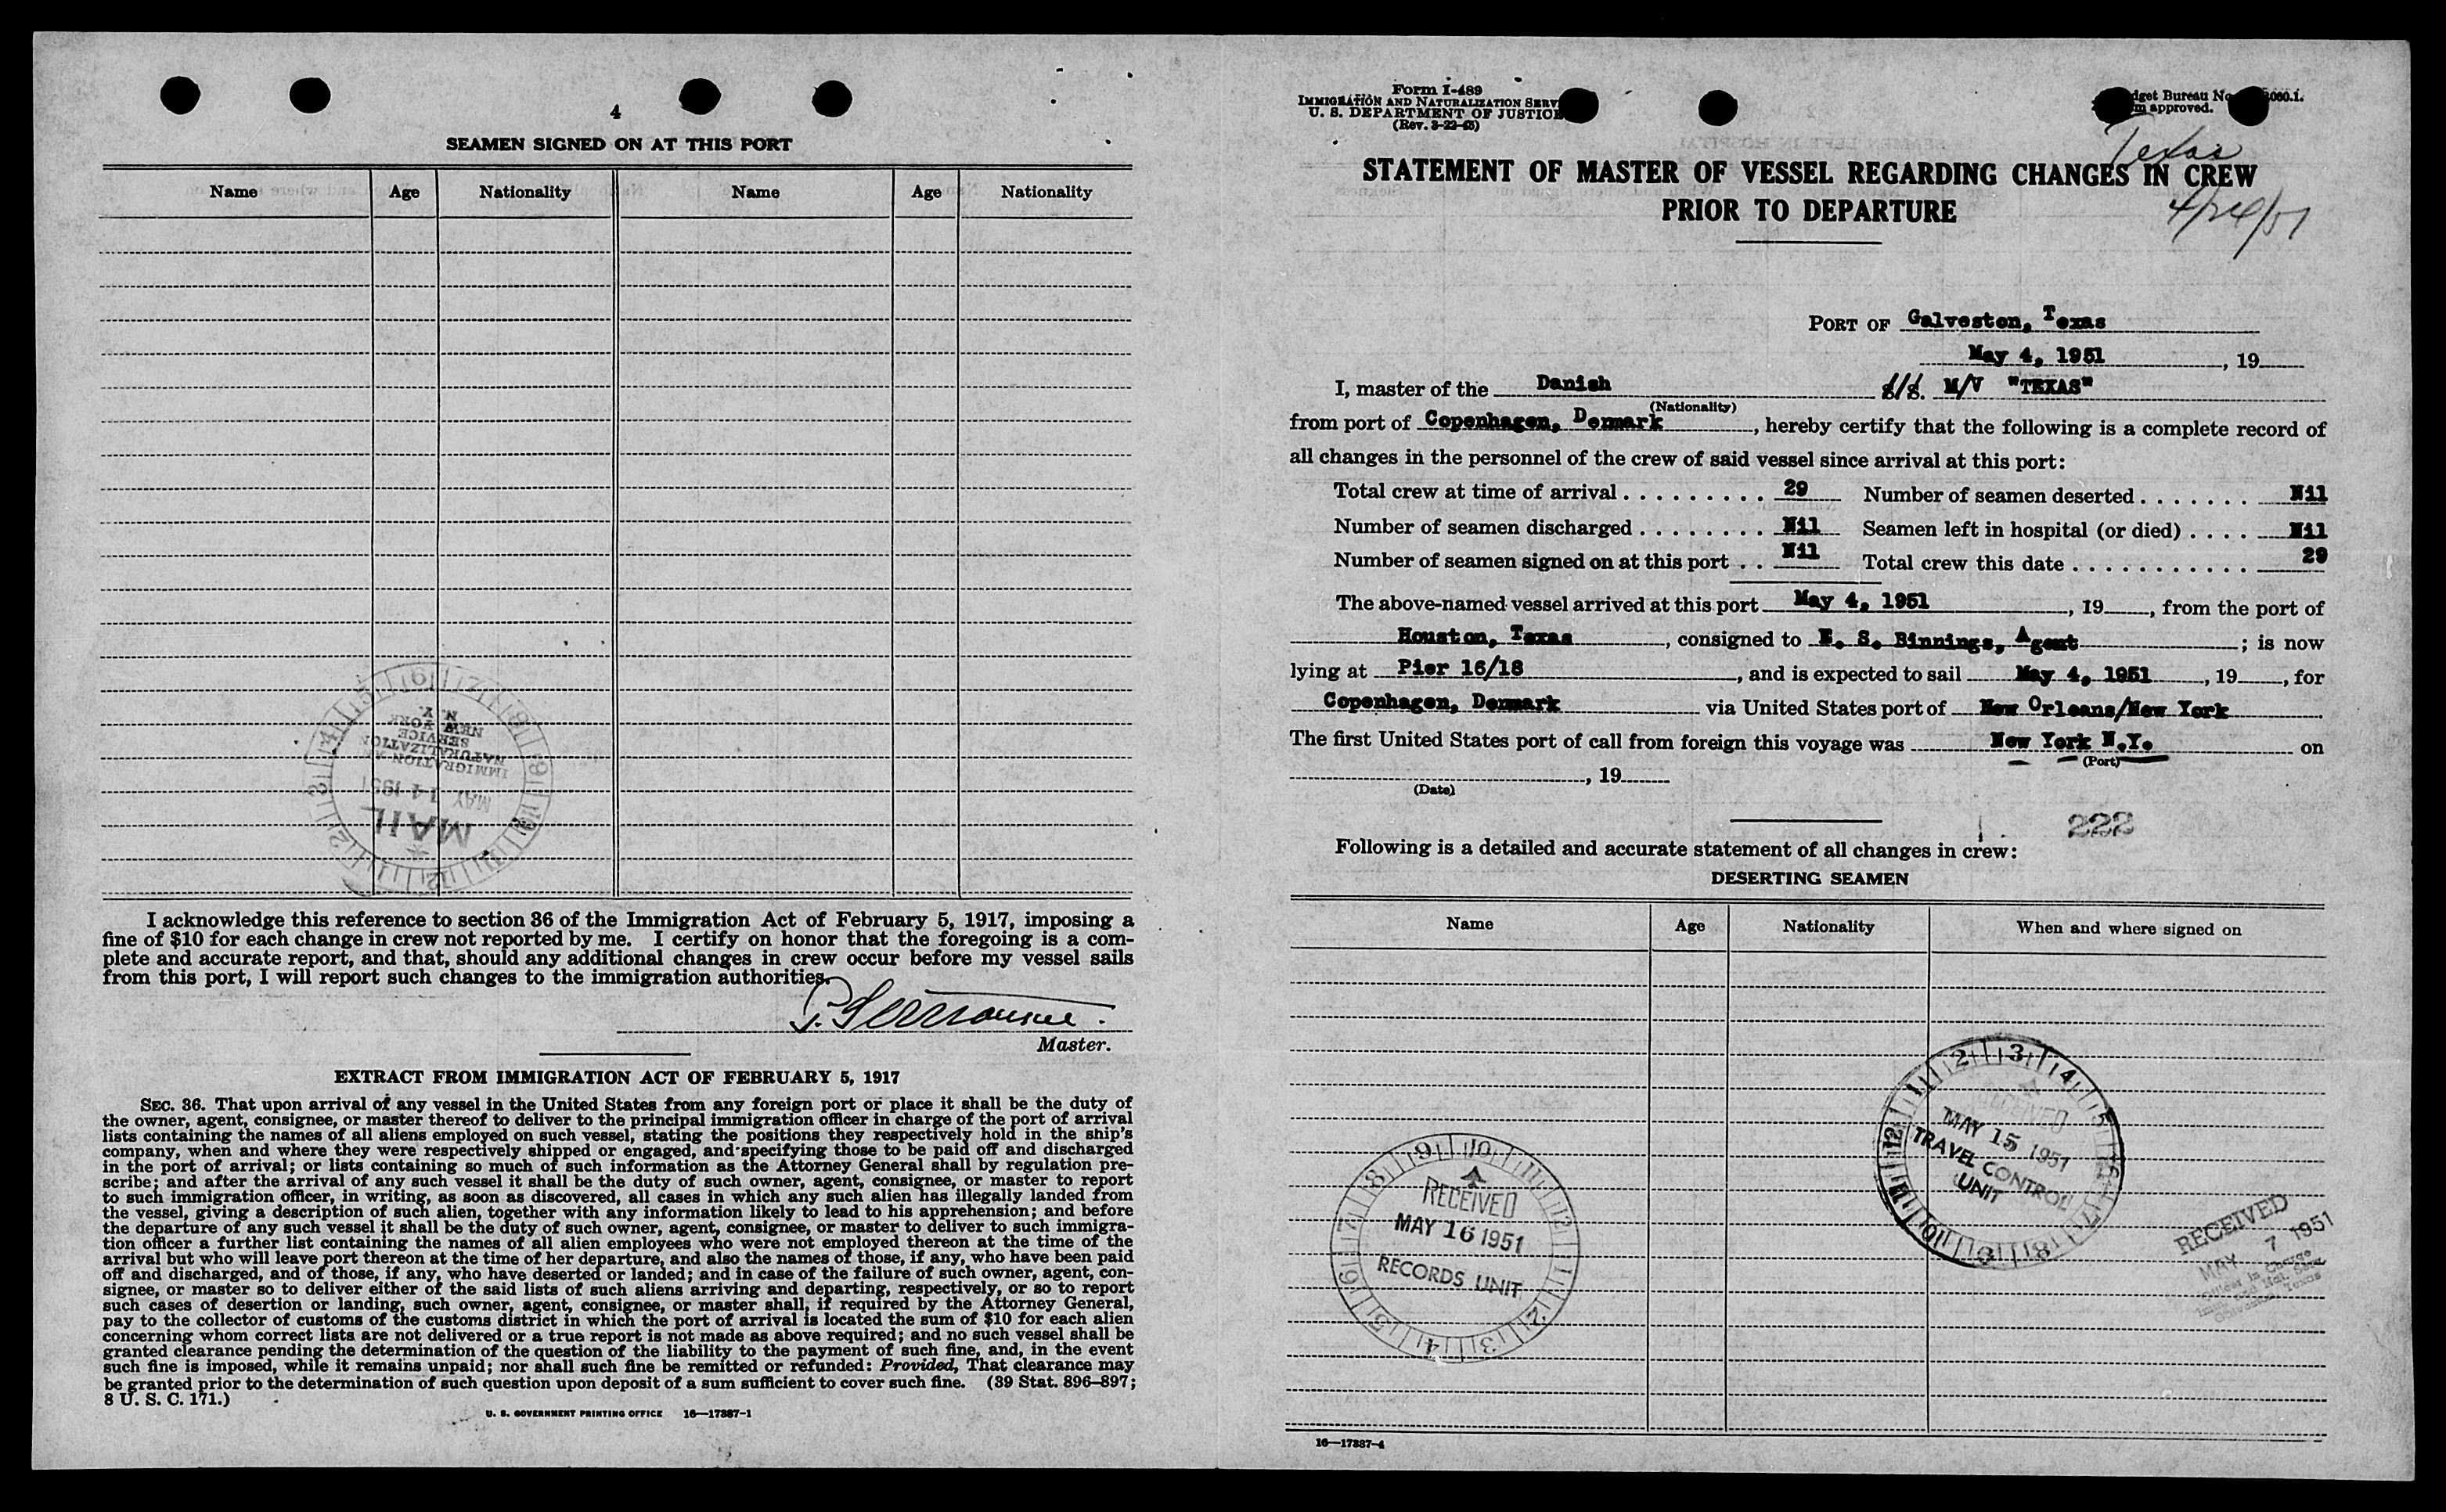 4
SEAMEN SIGNED ON AT THIS PORT
Name Age Nationality Name Age Nationality
MAIL
MAY 14 1951
IMMIGRATION &
NATURALIZATION
SERVICE
NEW YORK
N. Y.
I acknowledge this reference to section 36 of the Immigration Act of February 5, 1917, imposing a
fine of $10 for each change in crew not reported by me. I certify on honor that the foregoing is a com-
plete and accurate report, and that, should any additional changes in crew occur before my vessel sails
from this port, I will report such changes to the immigration authorities.
Master.
EXTRACT FROM IMMIGRATION ACT OF FEBRUARY 5, 1917
SEC. 36. That upon arrival of any vessel in the United States from any foreign port or place it shall be the duty of
the owner, agent, consignee, or master thereof to deliver to the principal immigration officer in charge of the port of arrival
lists containing the names of all aliens employed on such vessel, stating the positions they respectively hold in the ship's
company, when and where they were respectively shipped or engaged, and specifying those to be paid off and discharged
in the port of arrival; or lists containing so much of such information as the Attorney General shall by regulation pre-
scribe; and after the arrival of any such vessel it shall be the duty of such owner, agent, consignee, or master to report
to such immigration officer, in writing, as soon as discovered, all cases in which any such alien has illegally landed from
the vessel, giving a description of such alien, together with any information likely to lead to his apprehension; and before
the departure of any such vessel it shall be the duty of such owner, agent, consignee, or master to deliver to such immigra-
tion officer a further list containing the names of all alien employees who were not employed thereon at the time of the
arrival but who will leave port thereon at the time of her departure, and also the names of those, if any, who have been paid
off and discharged, and of those, if any, who have deserted or landed; and in case of the failure of such owner, agent, con-
signee, or master so to deliver either of the said lists of such aliens arriving and departing, respectively, or so to report
such cases of desertion or landing, such owner, agent, consignee, or master shall, if required by the Attorney General,
pay to the collector of customs of the customs district in which the port of arrival is located the sum of $10 for each alien
concerning whom correct lists are not delivered or a true report is not made as above required; and no such vessel shall be
granted clearance pending the determination of the question of the liability to the payment of such fine, and, in the event
such fine is imposed, while it remains unpaid; nor shall such fine be remitted or refunded: Provided, That clearance may
be granted prior to the determination of such question upon deposit of a sum sufficient to cover such fine. (39 Stat. 896–897;
8 U. S. C. 171.)
U. S. GOVERNMENT PRINTING OFFICE 16—17387-1
Form I-489
IMMIGRATION AND NATURALIZATION SERV
U. S. DEPARTMENT OF JUSTICE
(Rev. 3-22-45)
Bureau No.
approved.
Texas
STATEMENT OF MASTER OF VESSEL REGARDING CHANGES IN CREW
PRIOR TO DEPARTURE
4/24/51
PORT OF Galveston, Texas
May 4, 1951, 19
I, master of the Danish S/S. M/V "TEXAS"
(Nationality)
from port of Copenhagen, Denmark, hereby certify that the following is a complete record of
all changes in the personnel of the crew of said vessel since arrival at this port:
Total crew at time of arrival 29 Number of seamen deserted Nil
Number of seamen discharged Nil Seamen left in hospital (or died) Nil
Number of seamen signed on at this port Nil Total crew this date 29
The above-named vessel arrived at this port May 4, 1951, 19, from the port of
Houston, Texas, consigned to E. S. Binnings, Agent; is now
lying at Pier 16/18, and is expected to sail May 4, 1951, 19, for
Copenhagen, Denmark via United States port of New Orleans/New York
The first United States port of call from foreign this voyage was New York N.Y. on
(Port)
, 19
(Date)
222
Following is a detailed and accurate statement of all changes in crew:
DESERTING SEAMEN
Name Age Nationality When and where signed on
RECEIVED
MAY 15 1951
TRAVEL CONTROL
UNIT
RECEIVED
MAY 16 1951
RECORDS UNIT
RECEIVED
MAY 7 1951
16—17387-4